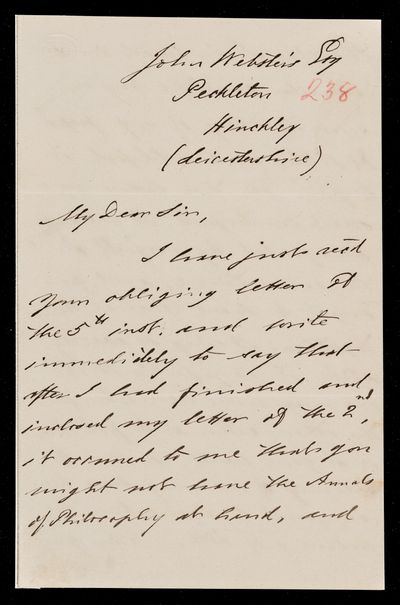 John Webster's Esq
Peckleton 238
Hinckley
(Leicestershire)
My Dear Sir,
I have just rec'd
your obliging letter of
the 5th inst. and write
immedidely to say that
after I had finished and
inclosed my letter of the 2nd,
it occurred to me that you
might not have the Annals
of Philosophy at hand, and